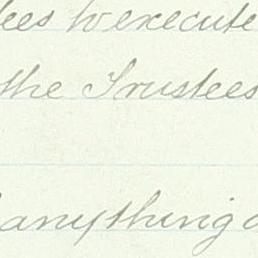 ees to execute
the Trustees
anything